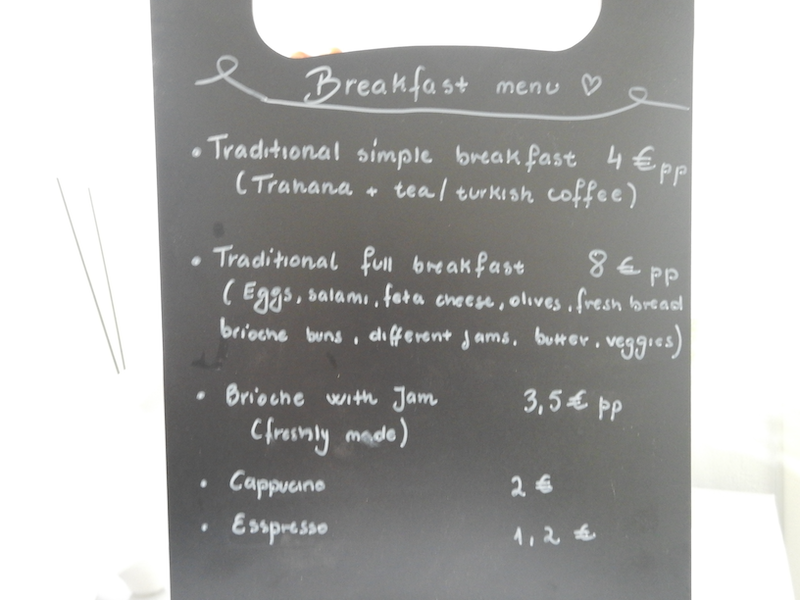 Breakfast menu ♡
• Traditional simple breakfast 4 € pp
(Trahana + tea/turkish coffee)
• Traditional full breakfast 8 € pp
(Eggs, salami, feta cheese, olives, fresh bread
brioche buns, different jams, butter, veggies)
• Brioche with Jam 3,5 € pp
(freshly made)
• Cappucino 2 €
• Esspresso 1,2 €